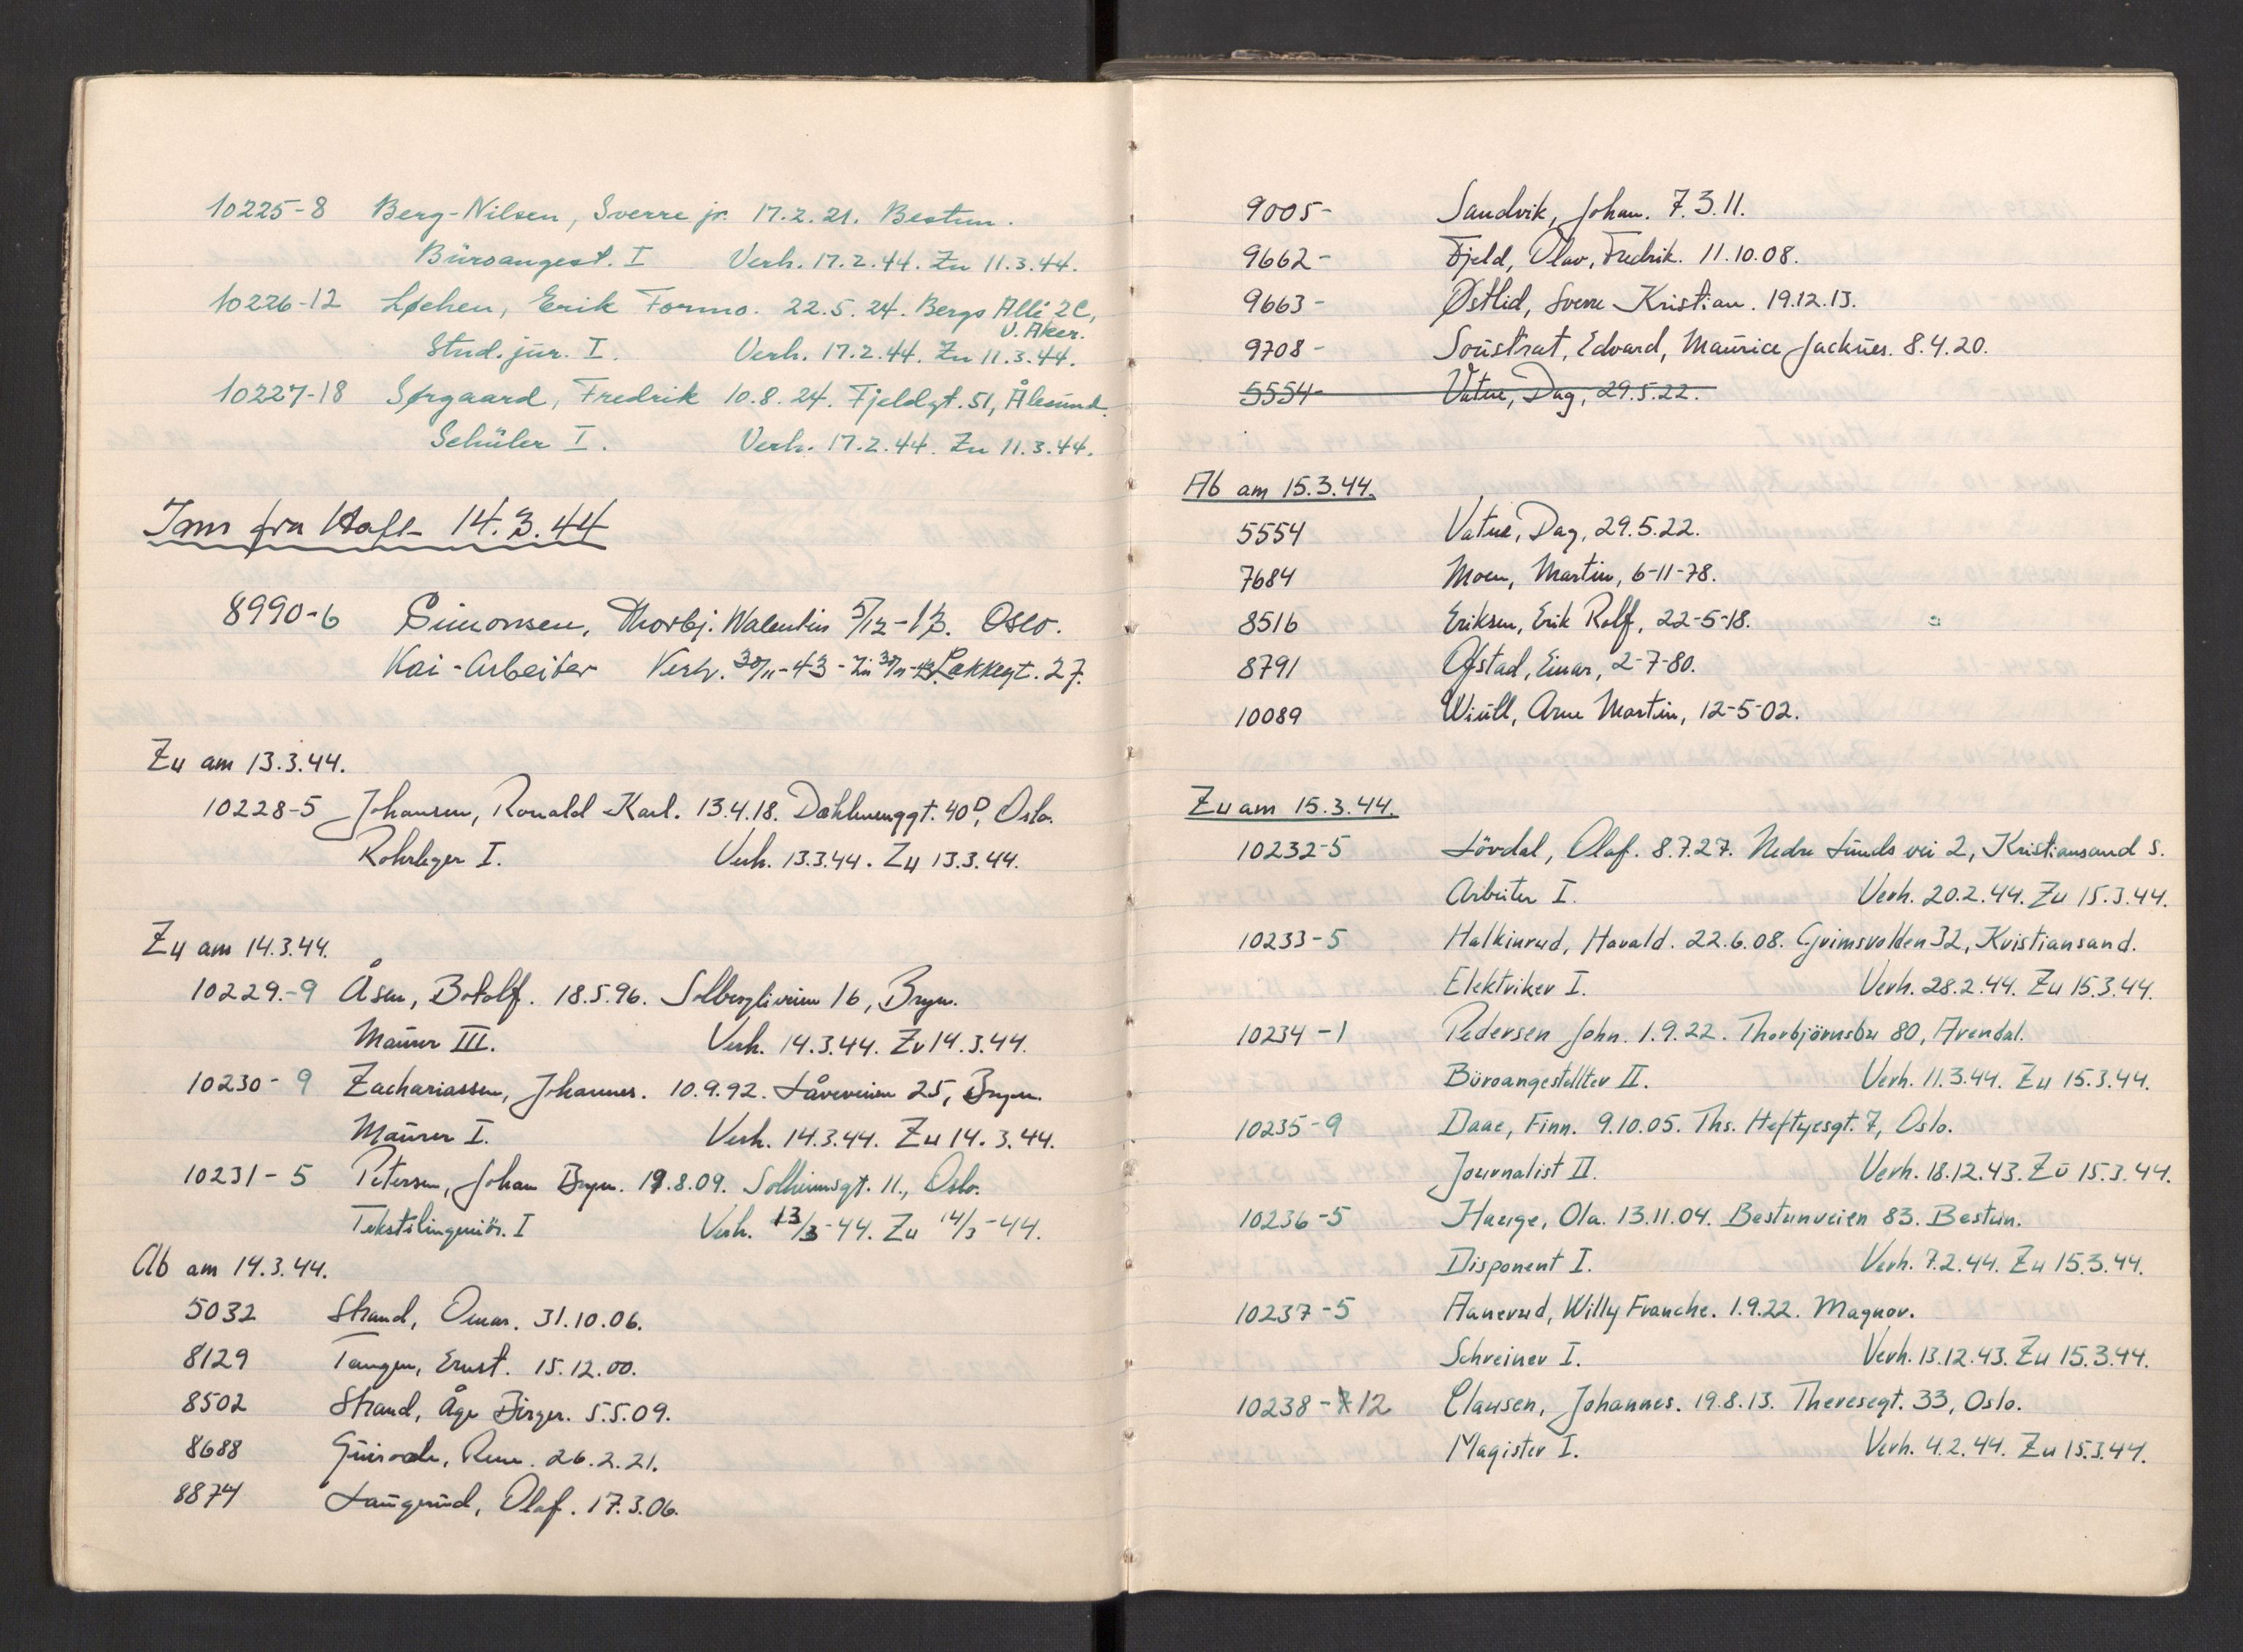 10225-8 Berg-Nilsen, Sverre jr. 17.2.21. Bestum.
Büroangest. I Verh. 17.2.44. Zu 11.3.44.
10226-12 Løchen, Erik Formo. 22.5.24. Bergs Allé 2C,
V. Aker.
Stud. jur. I. Verh. 17.2.44. Zu 11.3.44.
10227-18 Sørgaard, Fredrik 10.8.24. Fjeldgt. 51, Ålesund.
Schüler I. Verh. 17.2.44. Zu 11.3.44.
fra Haft 14.3.44
8990-6 Simonsen, Thorbj. Walentin 5/12-13. Oslo.
Kai-Arbeiter Verh. 30/11-43 - Zu 30/11-43 Lakkegt. 27.
Zu am 13.3.44.
10228-5 Johansen, Ronald Karl. 13.4.18. Dæhlenenggt. 40D, Oslo.
Rohrleger I. Verh. 13.3.44. Zu 13.3.44.
Zu am 14.3.44.
10229.-9 Åsen, Botolf. 18.5.96. Solbergliveien 16, Bryn.
Maurer III. Verh. 14.3.44. Zu 14.3.44.
10230-9 Zachariassen, Johannes. 10.9.92. 25, Bryn.
Maurer I. Verh. 14.3.44. Zu 14.3.44.
10231-5 Petersen, Johan Bryn. 19.8.09. Solheimsgt. 11., Oslo.
Tekstilingeniör. I Verh. 13/3-44. Zu 14/3-44.
Ab am 14.3.44.
5032 Strand, 31.10.06.
8129 Tangen, Ernst. 15.12.00.
8502 Strand, Åge Birger. 5.5.09.
8688 Rene. 26.2.21.
8874 Laugerud, Olaf. 17.3.06.
9005- Sandvik, Johan. 7.3.11.
9662- Fjeld, Olav, Fredrik. 11.10.08.
9663- Østlid, Sverre Kristian. 19.12.13.
9708- Soustrat, Edvard, Maurice Jackues. 8.4.20.
5554- Vatne, Dag, 29.5.22.
Ab am 15.3.44.
5554 Vatne, Dag, 29.5.22.
7684 Moen, Martin, 6-11-78.
8516 Eriksen, Erik Rolf, 22-5-18.
8791 Ofstad, Einar, 2-7-80.
10089 Wiull, Arne Martin, 12-5-02.
Zu am 15.3.44.
10232-5 Lövdal, Olaf. 8.7.27. Nedre Lunds vei 2, Kristiansand S.
Arbeiter I. Verh. 20.2.44. Zu 15.3.44.
10233-5 Halkinrud, Harald. 22.6.08. Grimsvolden 32, Kristiansand.
Elektriker I. Verh. 28.2.44. Zu 15.3.44.
10234-1 Pedersen John. 1.9.22. Thorbjörnsbu 80, Arendal.
Büroangestellter II. Verh. 11.3.44. Zu 15.3.44.
10235-9 Daae, Finn. 9.10.05. Ths. Heftyesgt. 7, Oslo.
Journalist II. Verh. 18.12.43. Zu 15.3.44.
10236-5 Hauge, Ola. 13.11.04. Bestumveien 83. Bestum.
Disponent I. Verh. 7.2.44. Zu 15.3.44.
10237-5 Aanerud, Willy Franche. 1.9.22. Magnor.
Schreiner I. Verh. 13.12.43. Zu 15.3.44.
10238-12 Clausen, Johannes. 19.8.13. Theresegt. 33, Oslo.
Magister I. Verh. 4.2.44. Zu 15.3.44.